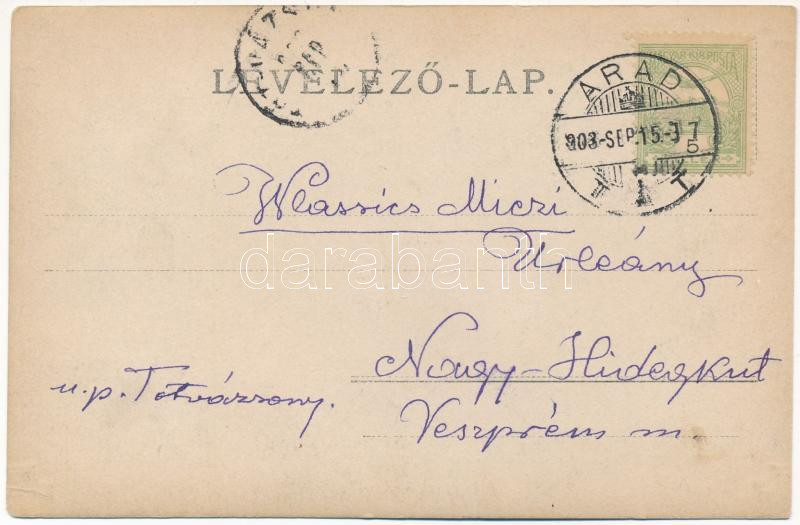 LEVELEZŐ-LAP.
ARAD
903-SEP.15.-3
MAGYAR KIR. POSTA
5
Wlassics Miczi
Urleány
darabanth
Nagy-Hidegkut
u.p. Tótvázsony.
Veszprém m.